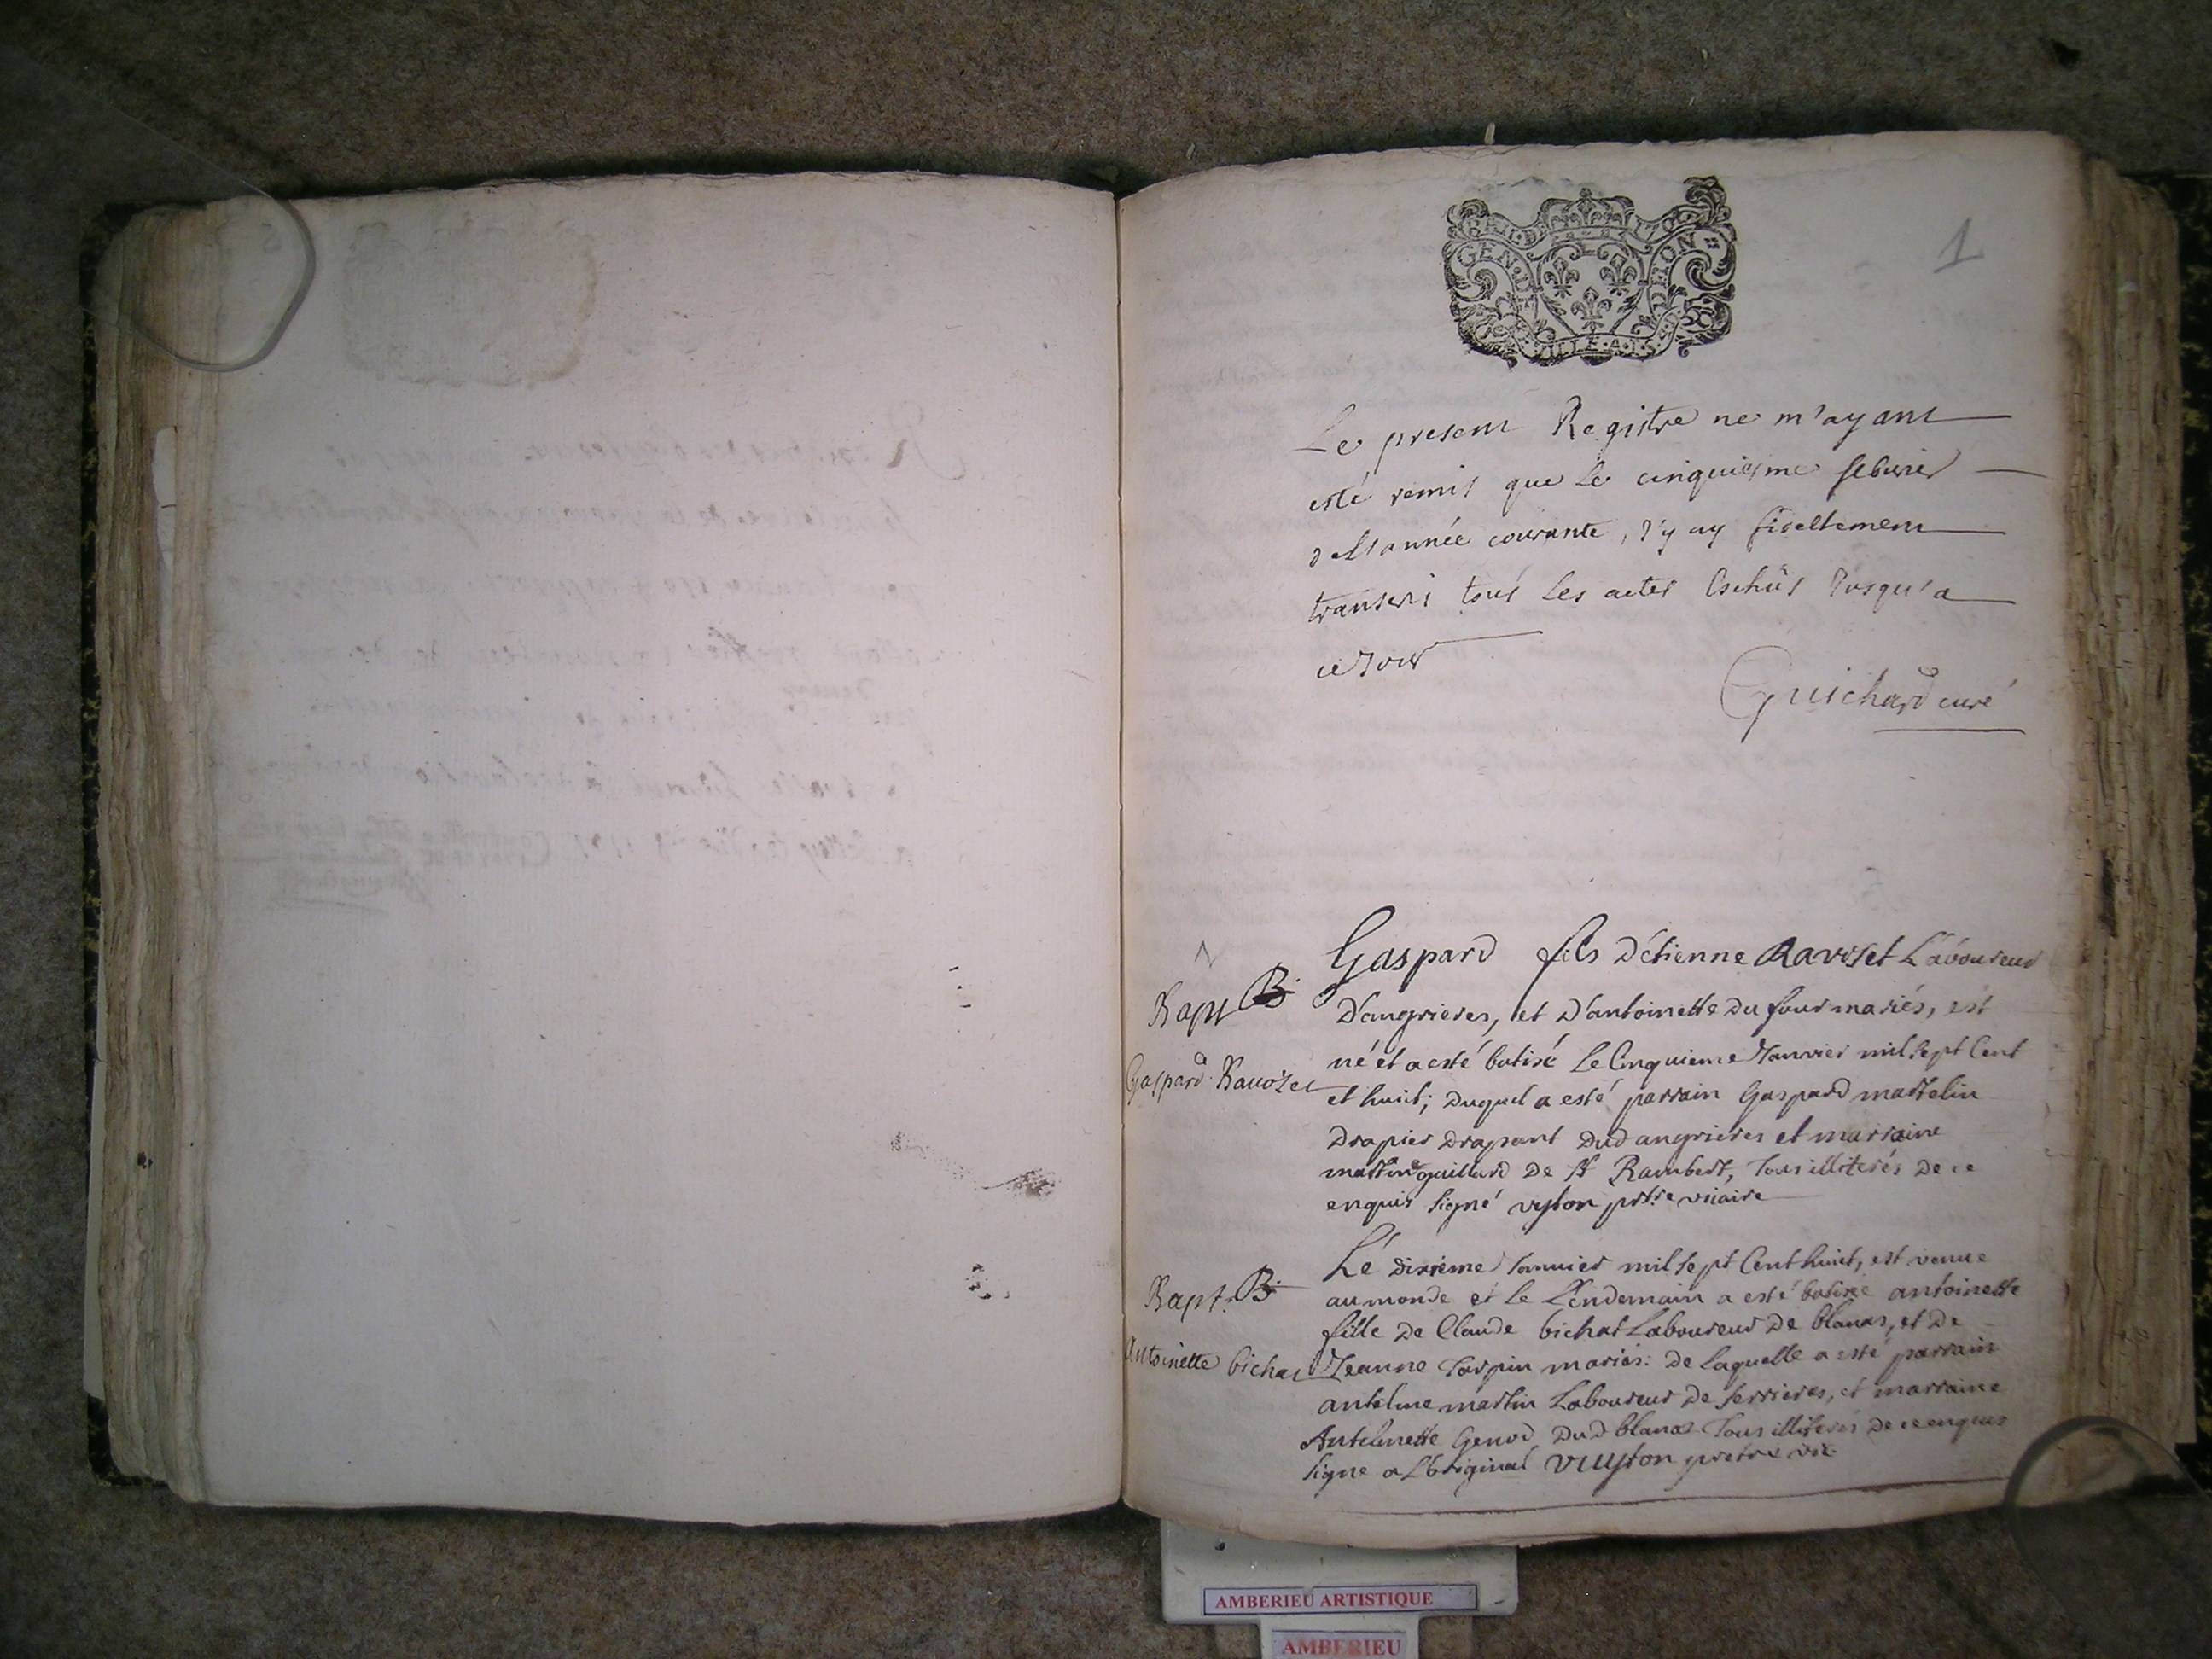 1
GEN
ION
Le present Registre ne m'ayant
esté remis que le cinquiesme febvrier
de l'année courante, j'y ay fidellement
transcri tous les actes eschüs jusqu'a
ce jour
Guichard curé
Bapt B
Gaspard Ravoset
Gaspard fils d'étienne Ravoset Laboureur
D'angrieres, et D'antoinette du four mariés, est
né et a esté batisé le Cinquieme Janvier mil sept Cent
et huit; duquel a esté parrain Gaspard martelin
Drapier drapant dud angrieres et marraine
guillard De st Rambert, Tous illiterés de ce
enquis signé vyton prtre vicaire
Bapt. B
Antoinette bichat
Lé dixiéme Janvier mil sept Cent huit, est venue
au monde et le Lendemain a esté batisée antoinette
fille de Claude bichat Laboureur de blanas, et de
Jeanne Tarpin mariés: de laquelle a esté parrain
antelme martin Laboureur de serrieres, et marraine
Antelmette Genod dud blanas Tous illiterés de ce enquis
signe a L'original vuyton pretre vic
AMBERIEU ARTISTIQUE
AMBERIEU